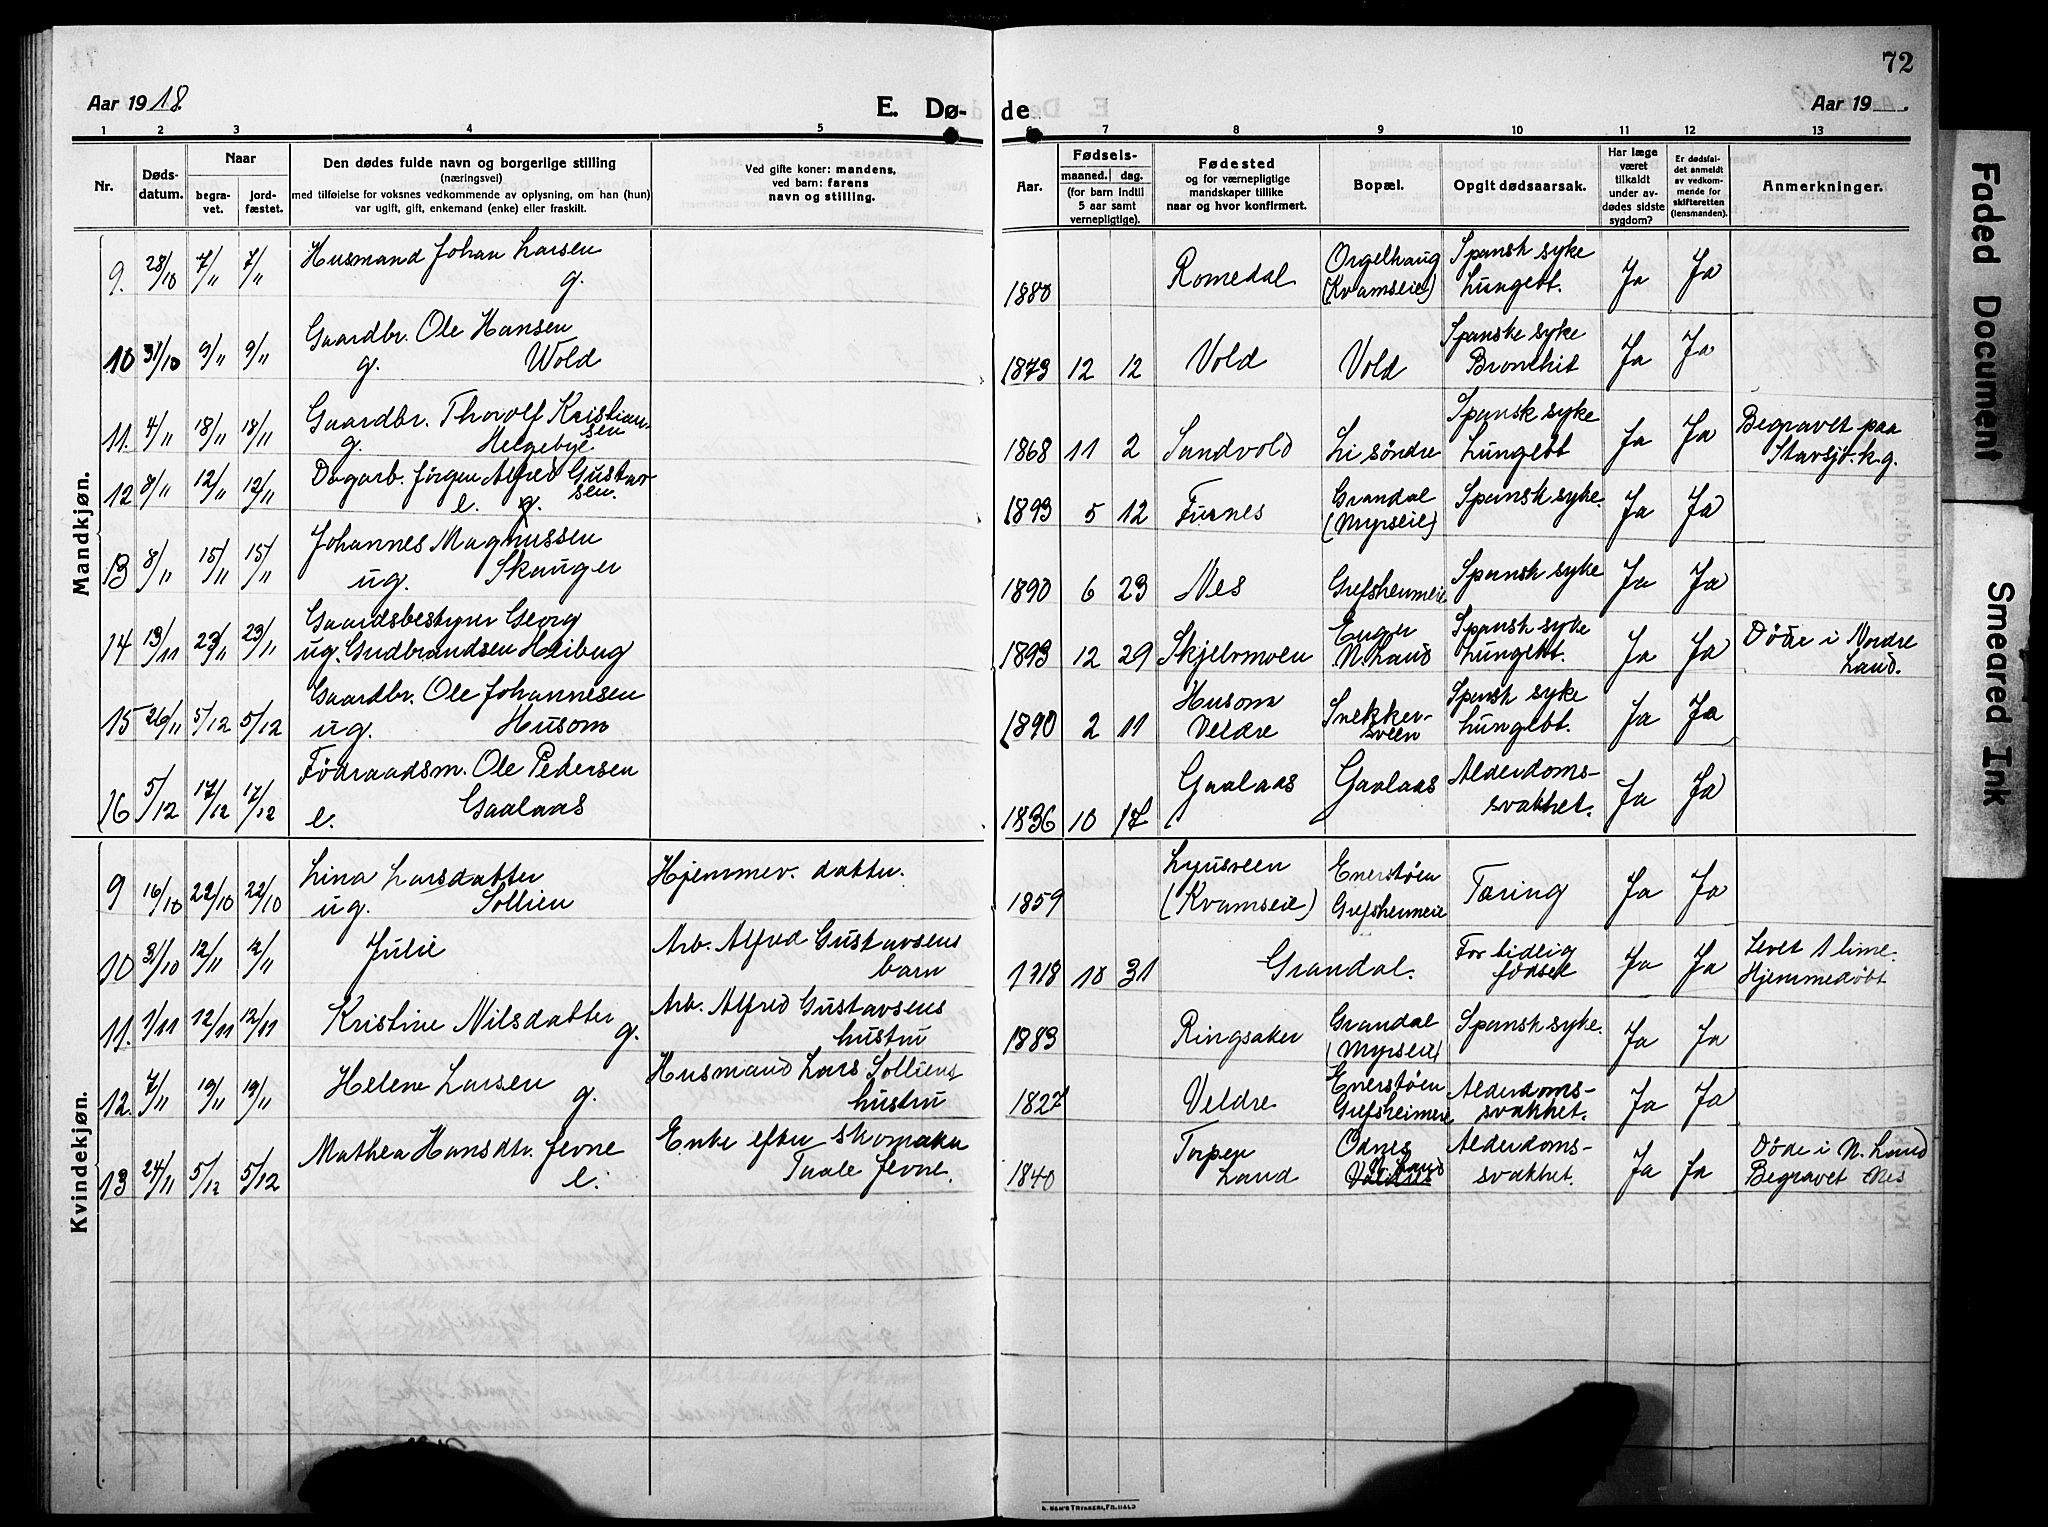 72
Aar 1918.
E. Dø-
de
Aar 19
1 2 3 4 5 6 7 8 9 10 11 12 13
Nr.
Døds-
datum.
Naar
begra-
vet.
jord-
fæstet.
Den dødes fulde navn og borgerlige stilling
(næringsvei)
med tilføielse for voksnes vedkommende av oplysning, om han (hun)
var ugift, gift, enkemand (enke) eller fraskilt.
Ved gifte koner: mandens,
ved barn: farens
navn og stilling.
Aar.
Fødsels-
maaned. dag.
(for barn indtil
5 aar samt
vernepligtige).
Fødested
og for værnepligtige
mandskaper tillike
naar og hvor konfirmert.
Bopæl.
Opgit dødsaarsak.
Har læge
været
tilkaldt
under av-
dødes sidste
sygdom?
Er dødsfal-
det anmeldt
av vedkom-
mende for
skifteretten
(lensmanden).
Anmerkninger.
Mandkjøn.
9. 28/10 7/11 7/11 Husmand Johan Larsen
g.
1880 Romedal Orgelhaug
(Kvamseie) Spansk syke
Lungebt. Ja Ja
10 31/10 9/11 9/11 Gaardbr. Ole Hansen
g. Wold
1873 12 12 Vold Vold Spanske syke
Bronchit Ja Ja
11. 4/11 18/11 18/11 Gaardbr. Thorolf Kristian-
sen
g. Helgebye
1868 11 2 Sandvold Li søndre Spansk syke
Lungebt Ja Ja Begravet paa
Stavsjø k.g.
12 8/11 12/11 12/11 Dagarb. Jørgen Alfred Gustav-
sen.
e. g.
1893 5 12 Furnes Grandal
(Myrseie) Spansk syke. Ja Ja
13 8/11 15/11 15/11 Johannes Magnussen
ug. Skauger
1890 6 23 Nes Grefsheimeie Spansk syke Ja Ja
14 13/11 23/11 23/11 Gaardsbestyrer Georg
ug. Gudbrandsen Heiberg
1893 12 29 Skjelvmoen Enger
N. Land Spansk syke
Lungebt. Ja Ja Døde i Nordre
Land.
15 26/11 5/12 5/12 Gaardbr. Ole Johannesen
ug. Husom
1890 2 11 Husom
Veldre Snekker-
sveen Spansk syke
Lungebt. Ja Ja
16 5/12 17/12 17/12 Fødraadsm. Ole Pedersen
e. Gaalaas
1836 10 17 Gaalaas Gaalaas Alderdoms-
svakhet. Ja Ja
Kvindekjøn.
9 16/10 22/10 22/10 Lina Larsdatter
ug. Sollien
Hjemmev. datter.
1859 Lyusveen
(Kvamseie) Enerstøen
Grefsheimeie Tæring Ja Ja
10 31/10 12/11 12/11 Julie
Arb. Alfred Gustavsens
barn
1918 10 31 Grandal. For tidlig
fødsel Ja Ja Levet 1 time.
Hjemmedøbt
11. 1/11 12/11 12/11 Kristine Nilsdatter
g.
Arb. Alfred Gustavsens
hustru
1883 Ringsaker Grandal
(Myrseie) Spansk syke. Ja Ja
12. 7/11 19/11 19/11 Helene Larsen
g.
Husmand Lars Solliens
hustru
1827 Veldre Enerstøen
Grefsheimeie Alderdoms-
svakhet. Ja Ja
13 24/11 5/12 5/12 Mathea Hansdtr. Jevne
e.
Enke efter skomaker
Taale Jevne.
1840 Torpen
Land Odnes
N. Land
Valdres Alderdoms-
svakhet. Ja Ja Døde i N. Land
Begravet Nes
Faded Document
Smeared Ink